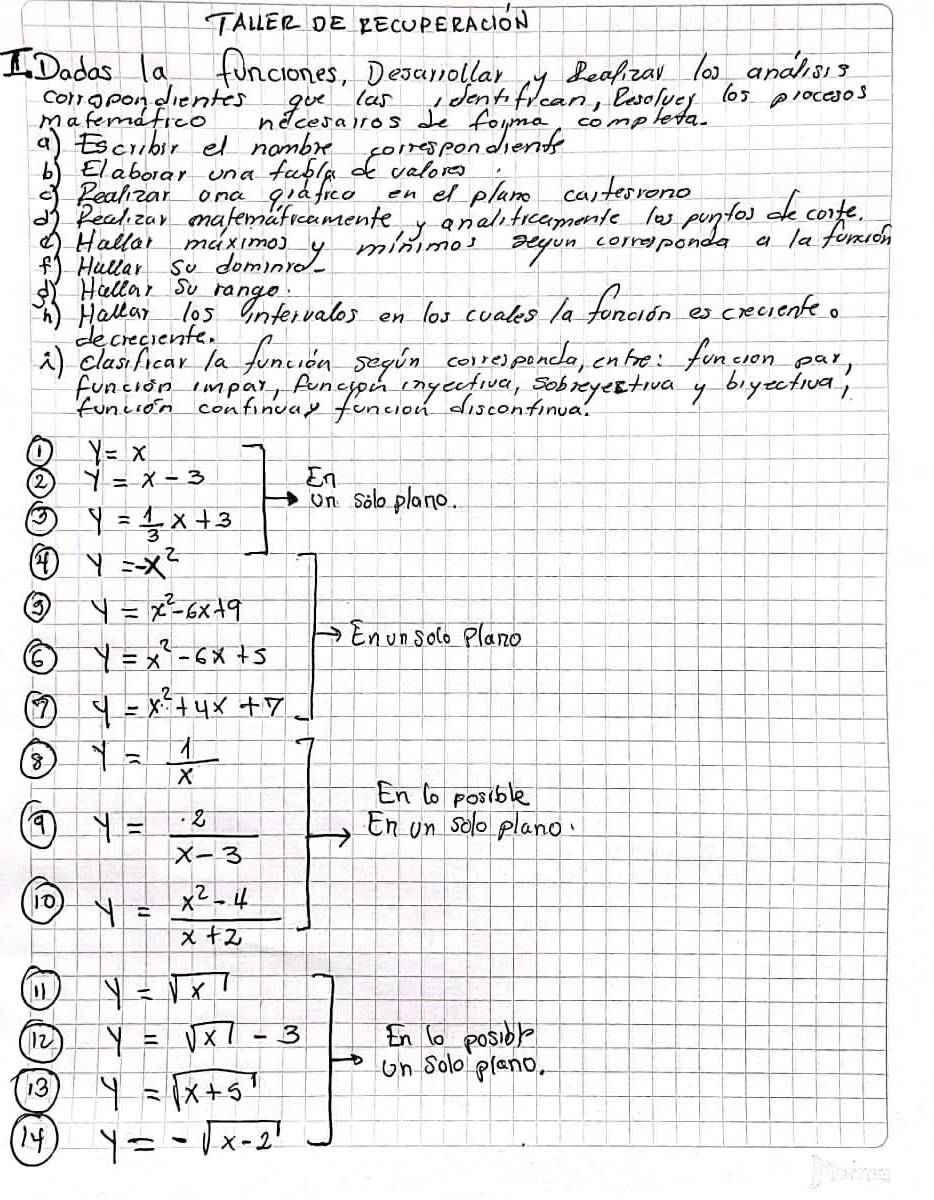 TALLER DE RECUPERACIÓN
I. Dadas la funciones, Desarrollar y Realizar los análisis
correspondientes que las identifican, Resolver los procesos
matemático necesarios de forma completa.
a) Escribir el nombre correspondiente
b) Elaborar una tabla de valores.
c) Realizar una gráfico en el plano cartesiano
d) Realizar matemáticamente y analíticamente los puntos de corte.
e) Hallar máximos y mínimos según corresponda a la función
f) Hallar su dominio.
g) Hallar su rango.
h) Hallar los intervalos en los cuales la función es creciente o
decreciente.
i) clasificar la función según corresponda, entre: función par,
función impar, función inyectiva, sobreyectiva y biyectiva,
función continua y función discontinua.
① Y = x
② Y = x - 3
③ Y = 1/3 x + 3
En
un solo plano.
④ Y = -x²
⑤ Y = x² - 6x + 9
⑥ Y = x² - 6x + 5
⑦ Y = x² + 4x + 7
En un solo Plano
⑧ Y = 1/x
⑨ Y = 2/(x - 3)
⑩ Y = (x² - 4)/(x + 2)
En lo posible
En un solo plano.
⑪ Y = √x
⑫ Y = √x - 3
⑬ Y = √(x + 5)
⑭ Y = -√(x - 2)
En lo posible
un solo plano.
Norma